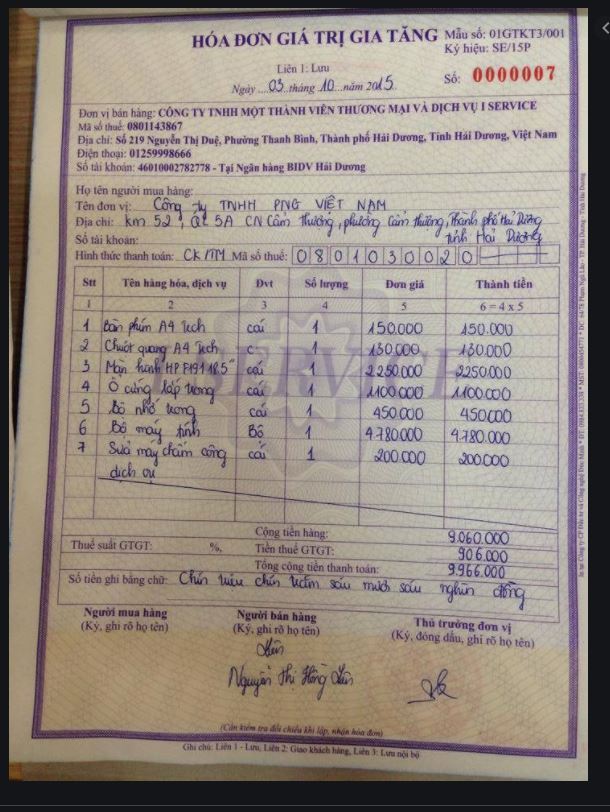 HÓA ĐƠN GIÁ TRỊ GIA TĂNG
Mẫu số: 01GTKT3/001
Ký hiệu: SE/15P
Liên 1: Lưu
Số: 0000007
Ngày ....03..tháng ..10...năm 2015.
Đơn vị bán hàng: CÔNG TY TNHH MỘT THÀNH VIÊN THƯƠNG MẠI VÀ DỊCH VỤ I SERVICE
Mã số thuế: 0801143867
Địa chỉ: Số 219 Nguyễn Thị Duệ, Phường Thanh Bình, Thành phố Hải Dương, Tỉnh Hải Dương, Việt Nam
Điện thoại: 01259998666
Số tài khoản: 46010002782778 - Tại Ngân hàng BIDV Hải Dương
Họ tên người mua hàng:
Tên đơn vị: Công ty TNHH PNG VIỆT NAM
Địa chỉ: km 52, QL 5A CN Cẩm thượng, phường Cẩm thượng, Thành phố Hải Dương
Số tài khoản: tỉnh Hải Dương
Hình thức thanh toán: CK/TM Mã số thuế: 0801030020
Stt Tên hàng hóa, dịch vụ Đvt Số lượng Đơn giá Thành tiền
1 2 3 4 5 6 = 4 x 5
1 Bàn phím A4 Tech cái 1 150.000 150.000
2 Chuột quang A4 Tech c 1 130.000 130.000
3 Màn hình HP P191 18.5" cái 1 2250.000 2250.000
4 Ổ cứng lắp trong cái 1 1100.000 1100.000
5 Bộ nhớ trong cái 1 450.000 450.000
6 Bộ máy tính Bộ 1 4.780.000 4.780.000
7 Sửa máy chấm công cái 1 200.000 200.000
dịch vụ
SERVICE
Cộng tiền hàng: 9.060.000
Thuế suất GTGT: %, Tiền thuế GTGT: 906.000
Tổng cộng tiền thanh toán: 9.966.000
Số tiền ghi bằng chữ: Chín triệu chín trăm sáu mươi sáu nghìn đồng
Người mua hàng Người bán hàng Thủ trưởng đơn vị
(Ký, ghi rõ họ tên) (Ký, ghi rõ họ tên) (Ký, đóng dấu, ghi rõ họ tên)
Nguyễn Thị Hồng
(Cần kiểm tra đối chiếu khi lập, nhận hóa đơn)
Ghi chú: Liên 1 - Lưu, Liên 2: Giao khách hàng, Liên 3: Lưu nội bộ